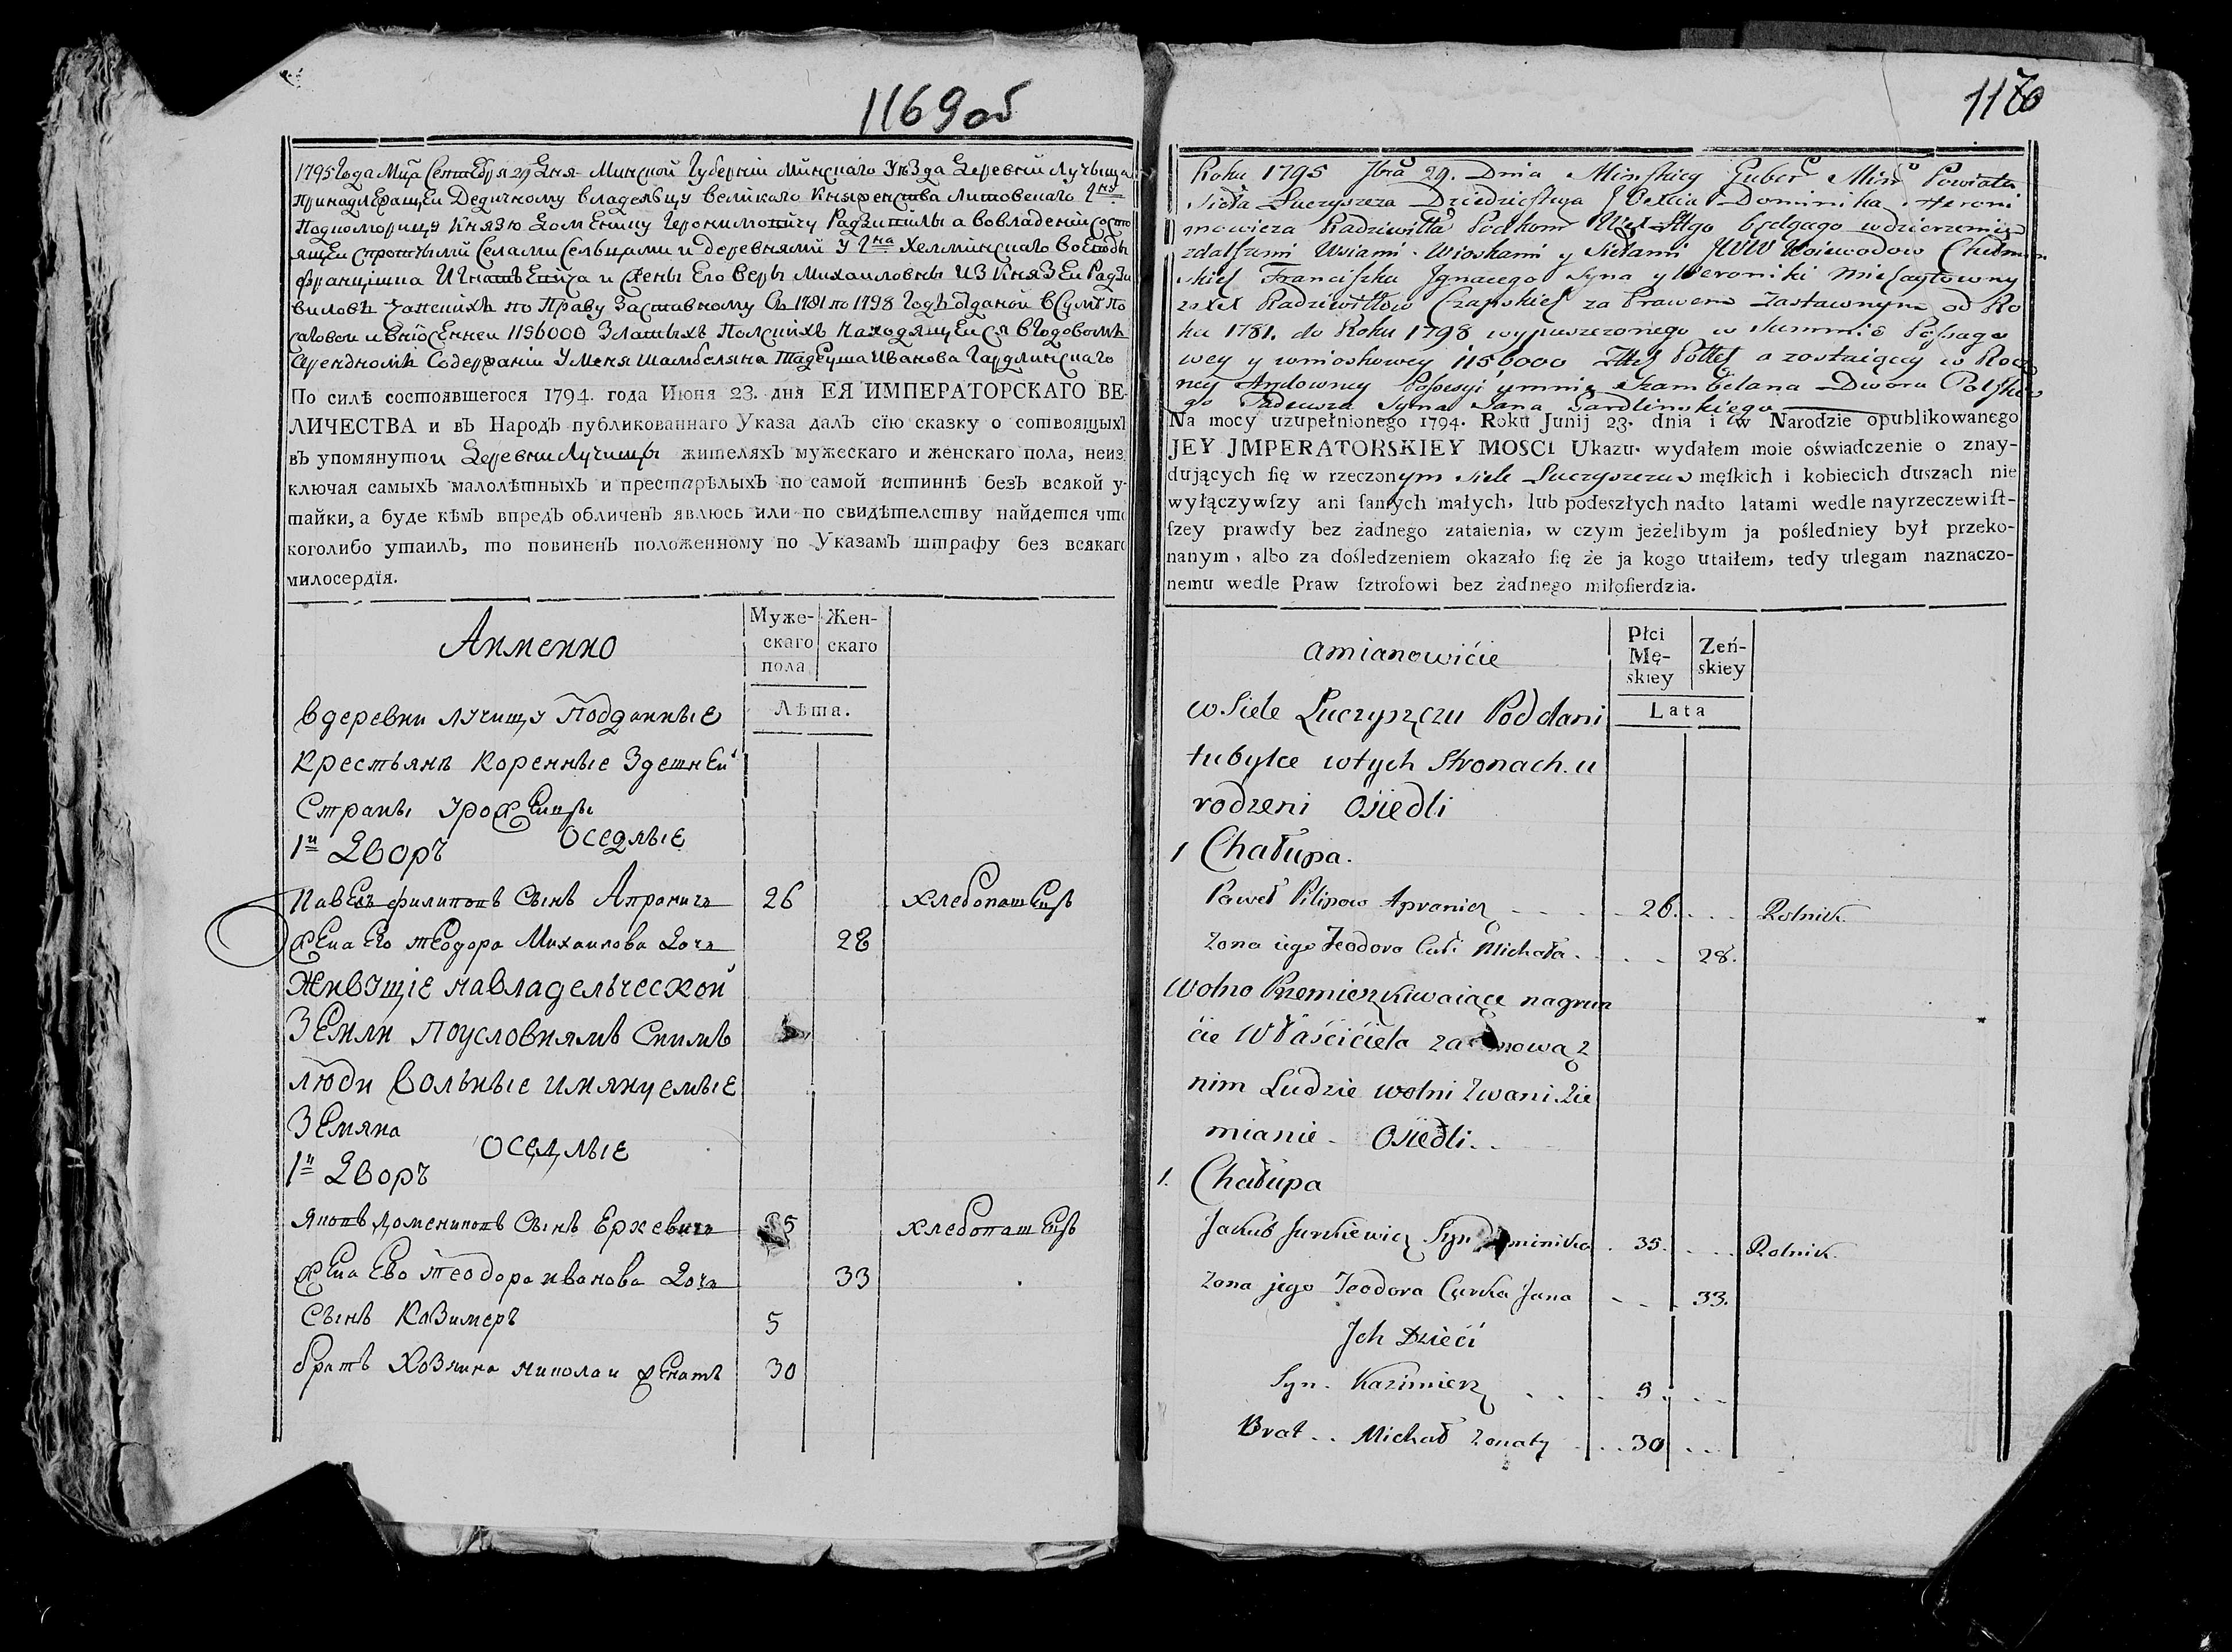 1169об
1795 Года Мца Сентебря 29 Дня Минской Губернїи Минскаго Уѣзда Деревни Лучища
Принадлежащей Дедичному владельцу великаго Княженства Литовскаго
Подкоморицу Князю Доменику Геронимовичу Радзивилы а вовладении состо
ящей спротчыми Селами Сельцами и деревнями у Гна Хелминскаго Воеводы
Францишка Игнатьевича и жены Его Веры Михаиловны из Князей Радзи
виловъ Чапскихъ по Праву Заставному Съ 1781 по 1798 Годъ отданой в Суме По
саговой и внїосенней 1156000 Златыхъ Полскихъ Находящейся в Годовомъ
Арендномъ Содержанїи У меня Шамбеляна Тадеуша Иванова Гардлинскаго
По силѣ состоявшегося 1794. года Июня 23. дня ЕЯ ИМПЕРАТОРСКАГО ВЕ-
ЛИЧЕСТВА и въ Народъ публикованнаго Указа далъ сїю сказку о сотвоящыхъ
въ упомянутой Деревни Лучищы жителяхъ мужескаго и женскаго пола, неиз
ключая самыхъ малолѣтныхъ и престарѣлыхъ по самой истиннѣ безъ всякой у-
тайки, а буде кѣмъ впредъ обличенъ явлюсь или по свидѣтелству найдется что
коголибо утаилъ, то повиненъ положенному по Указамъ штрафу без всякаго
милосердїя.
Аименно
Муже-скаго пола
Жен-скаго
Лѣта.
в деревни лучищу Подданные
крестьянъ коренные Здешней
Страны урожЕнцы
оседлые
1й Дворъ
Павелъ филиповъ Сынъ Апроничъ 26 хлебопашЕцъ
жена Его теодора Михаилова Дочь 28
живущїе навладельческой
ЗЕмли поусловиямъ Снимъ
люди вольные имянуемые
ЗЕмяна
оседлые
1й Дворъ
Яковъ домениковъ Сынъ Ержевичъ 35 хлебопашЕцъ
жена Ево теодора иванова Дочь 33
Сынъ Казимеръ 5
братъ Хозяина николаи жЕнатъ 30
1170
Roku 1795 7bra 29. Dnia Minskiey Guber Min Powiatu
Sioła Łuczyszcza Dziedzictwa J Oexcia Dominika Heroni
mowicza Radziwiłła Podkom Wiel Litgo będącego w dzierzeniu
zdalszemi Wsiami Wioskami y Siołami JWW Woiewodow Chełmin
skich Franciszka Jgnacego Syna y Weroniki Michayłowny
zoXeX Radziwiłłow Czapskich za Prawem Zastawnym od Ro
ku 1781. do Roku 1798 wypuszczonego w Summie Possago
wey y wnioskowey 1156000 Złł Polls a zostaiącey w Rocz
ney Arędowney Possesyi ymnie Szambelana Dworu Polskie
go Tadeusza Syna Jana Gardlinskiego
Na mocy uzupełnionego 1794. Roku Junij 23. dnia i w Narodzie opublikowanego
JEY JMPERATORSKIEY MOSCI Ukazu. wydałem moie oświadczenie o znay-
dujących ſię w rzeczonym siele Łuczyszczu męſkich i kobiecich duszach nie
wyłączywſzy ani ſamych małych, lub podeszłych nadto latami wedle nayrzeczewiſt-
ſzey prawdy bez żadnego zataienia, w czym jeżelibym ja poślednley był przeko-
nanym, albo za dośledzeniem okazało ſię że ja kogo utaiłem, tedy ulegam naznaczo-
nemu wedle Praw ſztrofowi bez żadnego miłoſierdzia.
amianowićie
Płci Mę-skiey
Zeń-skiey
Lata
w Siele Łuczyszczu Poddani
tubylce wtych Stronach u
rodzeni Osiedli
1 Chałupa.
Paweł Pilipow Apronicz 26. Rolnik
Zona iego Teodora Cur Michała 28.
Wolno Przemieszkiwaiące nagrun
cie Właściciela za umową z
nim Ludzie wolni Zwani Zie
mianie Osiedli
1. Chałupa
Jakub Jurkiewicz Syn Dominika 35. Rolnik
Zona jego Teodora Curka Jana 33.
Jch Dzieci
Syn. Kazimierz 5
Brat Michał Zonaty 30